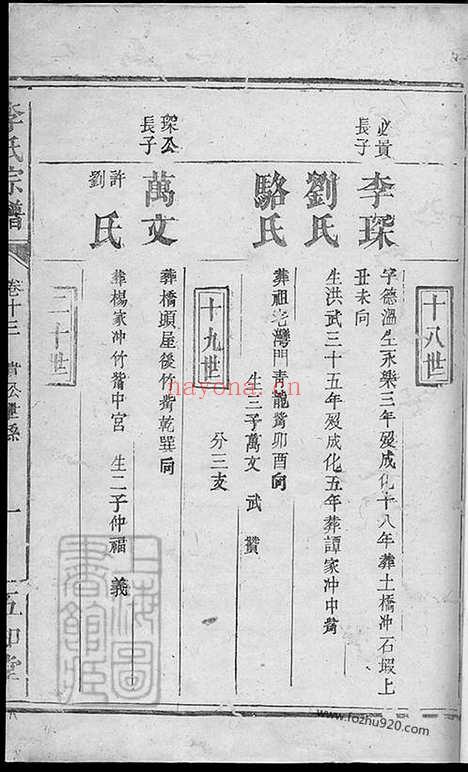 十八世
必貴
長子
李琛
字德溫生永樂三年歿成化十八年葬土橋冲石塅上
丑未向
劉氏
生洪武三十五年歿成化五年葬譚家冲中嘴
駱氏
葬祖老灣門青龍嘴卯酉向
生三子萬文 武 贊
十九世
分三支
琛公
長子
萬文
葬橋頭屋後竹嘴乾巽向
許
劉
氏
葬楊家冲竹嘴中宮 生二子仲福 義
二十世
李氏宗譜
卷十三
一
上海圖書館藏
hayona.cn
www.fozhu920.com